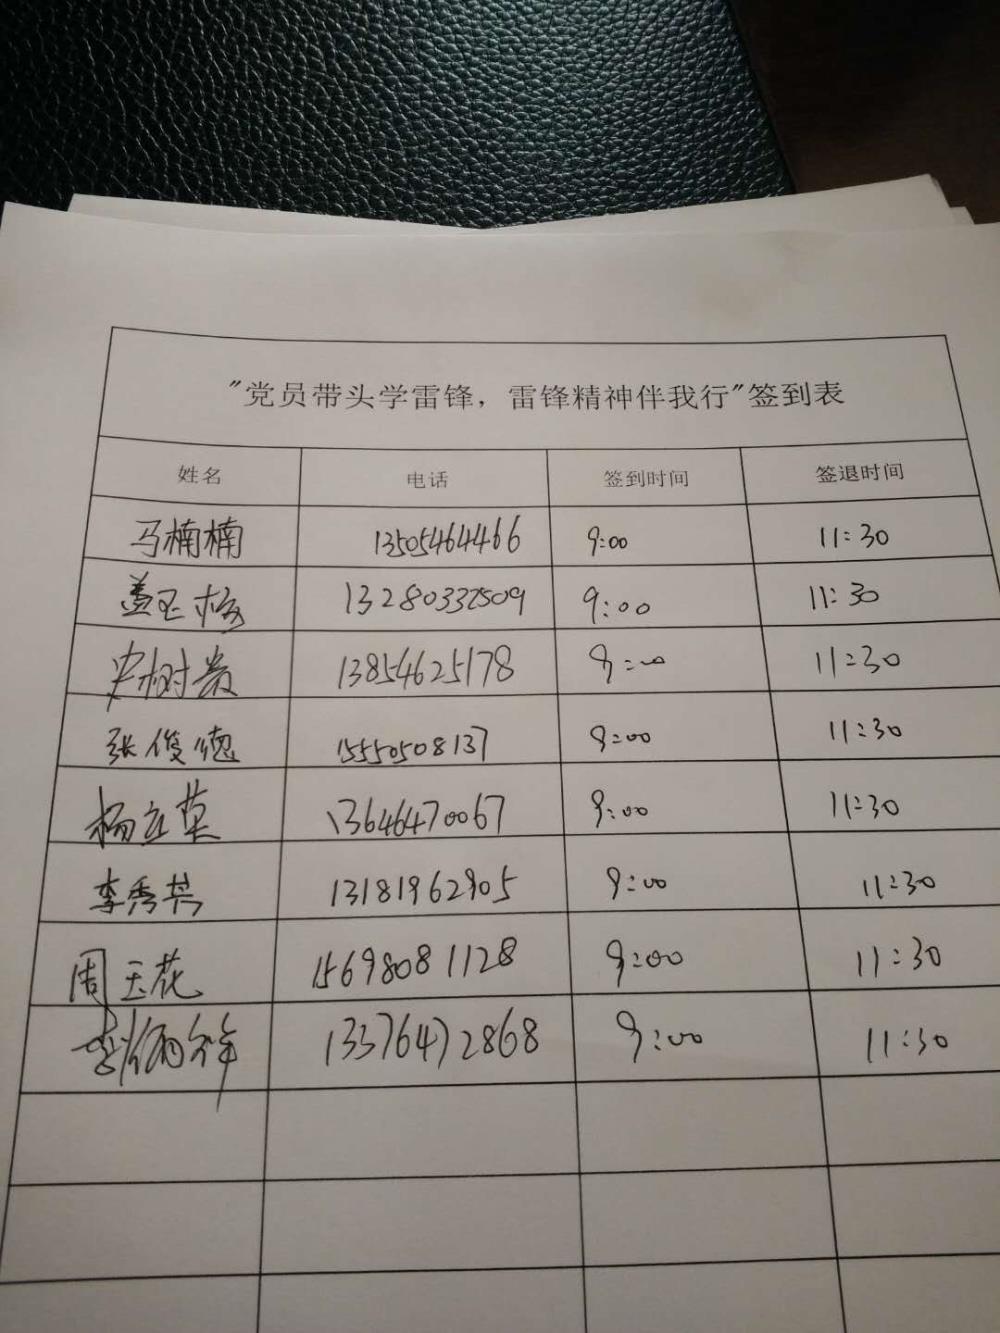 "党员带头学雷锋，雷锋精神伴我行"签到表
姓名 电话 签到时间 签退时间
马楠楠 13505464466 9:00 11:30
盖玉 13280332509 9:00 11:30
史树贵 13854625178 9:00 11:30
张俊德 15550508137 9:00 11:30
杨立英 13646470067 9:00 11:30
李秀芹 13181962905 9:00 11:30
周玉花 15698081128 9:00 11:30
李 13376472868 9:00 11:30